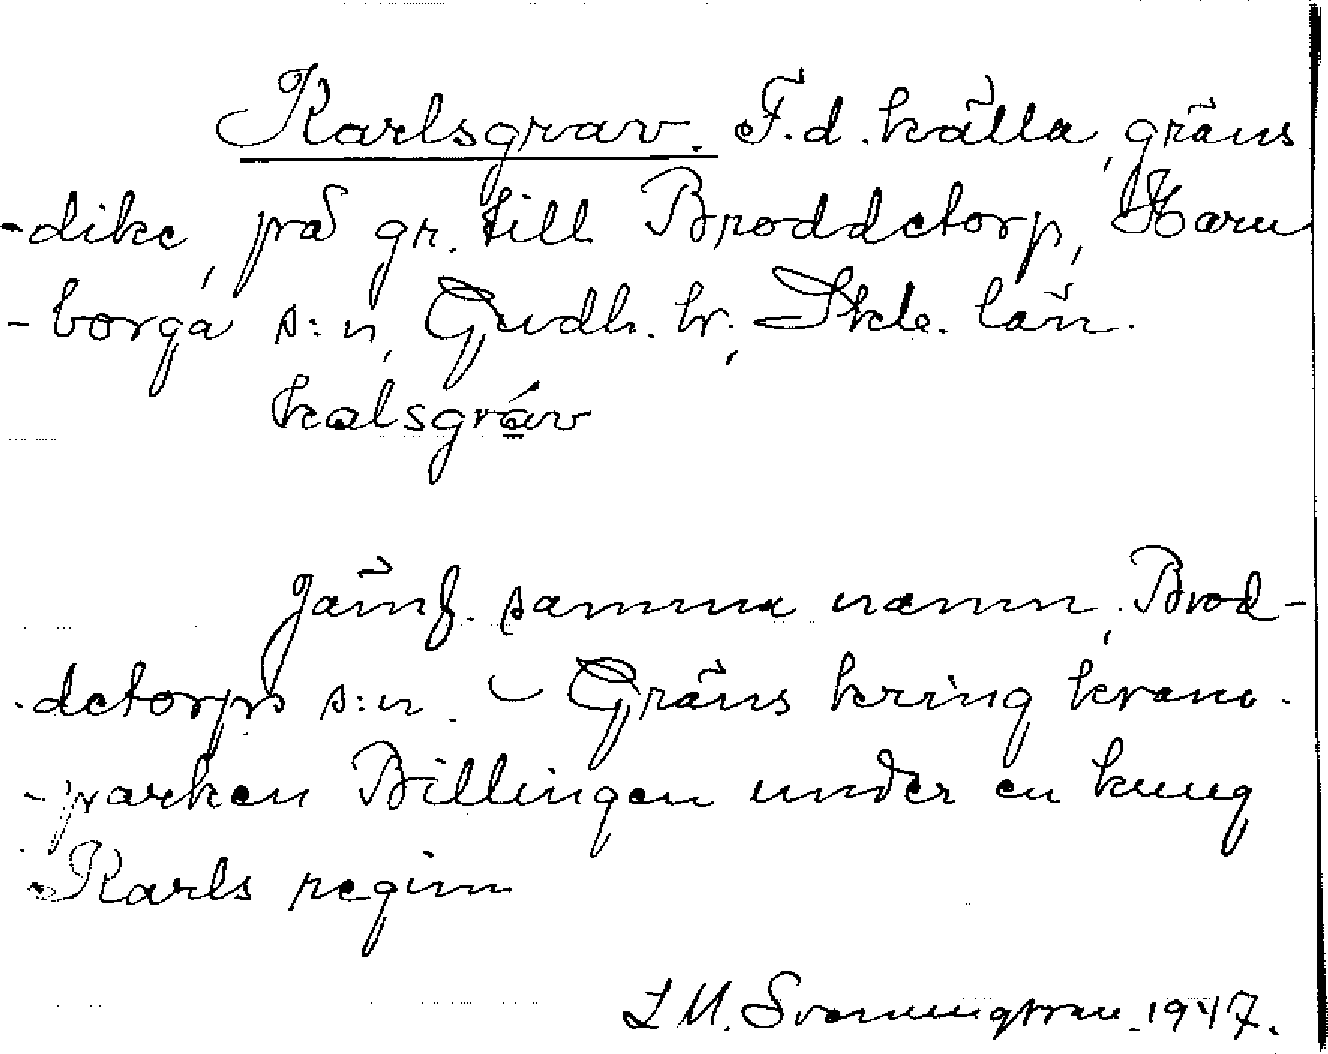 Karlsgrav. F.d. källa, gräns
-dike, på gr. till Broddetorp, Horn
-borga s:n, Gudh. hr, Skb. län.
kalsgráv
Jämf. samma namn, Brod-
detorps s:n. - Gräns kring krono-
-parken Billingen under en kung
Karls regim
L M. Svenungsson 1947.